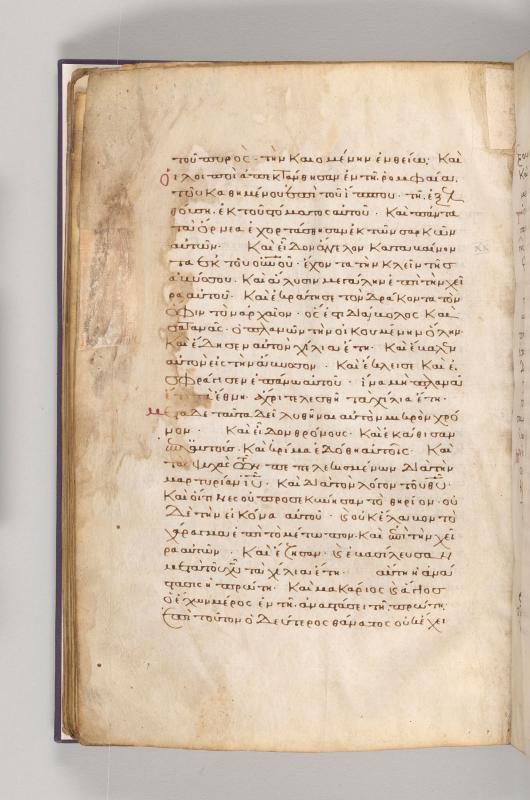 τοῦ πυρὸς· τὴν καιομένην ἐν θείω. Καὶ
οἱ λοιποὶ ἀπεκτάνθησαν ἐν τῆ ῥομφαία
τοῦ καθημένου ἐπὶ τοῦ ἵππου· τῆ ἐξελ
θούση ἐκ τοῦ στόματος αὐτοῦ· Καὶ πάντα
τὰ ὄρνεα ἐχορτάσθησαν ἐκ τῶν σαρκῶν
αὐτῶν· Καὶ εἶδον ἄγγελον καταβαίνον
τα ἐκ τοῦ οὐνοῦ· ἔχοντα τὴν κλεῖν τῆς
ἀβύσσου. Καὶ ἅλυσιν μεγάλην ἐπὶ τὴν χεῖ
ρα αὐτοῦ· Καὶ ἐκράτησε τὸν δράκοντα τὸν
ὄφιν τὸν ἀρχαῖον· ὅς ἐστι διάβολος καὶ
σατανᾶς· ὁ πλανῶν τὴν οἰκουμένην ὅλην·
Καὶ ἔδησεν αὐτὸν χίλια ἔτη· Καὶ ἔβαλεν
αὐτὸν εἰς τὴν ἄβυσσον· Καὶ ἔκλεισε καὶ ἐ
σφράγισεν ἐπάνω αὐτοῦ· ἵνα μὴ πλανᾶ
ἔτι τὰ ἔθνη· ἄχρι τελεσθῆ τὰ χίλια ἔτη·
Μετὰ δὲ ταῦτα δεῖ λυθῆναι αὐτὸν μικρὸν χρό
νον· Καὶ εἶδον θρόνους· Καὶ ἐκάθισαν
ἐπ αὐτούς· Καὶ κρίμα ἐδόθη αὐτοῖς· Καὶ
τὰς ψυχὰς τῶν πεπελεκισμένων διὰ τὴν
μαρτυρίαν ιυ· Καὶ διὰ τὸν λόγον τοῦ θυ·
Καὶ οἵτινες οὐ προσεκύνησαν τὸ θηρίον· οὐ
δὲ τὴν εἰκόνα αὐτοῦ· ϗ οὐκ ἔλαβον τὸ
χάραγμα ἐπὶ τὸ μέτωπον· Καὶ ἐπὶ τὴν χεῖ
ρα αὐτῶν· Καὶ ἔζησαν· ϗ ἐβασίλευσαν
μετὰ τοῦ χυ τὰ χίλια ἔτη· αὕτη ἡ ἀνά
στασις ἡ πρώτη· Καὶ μακάριος ϗ ἅγιος
ὁ ἔχων μέρος ἐν τῆ ἀναστάσει τῆ πρώτη·
Ἐπὶ τούτων ὁ δεύτερος θάνατος οὐκ ἔχει